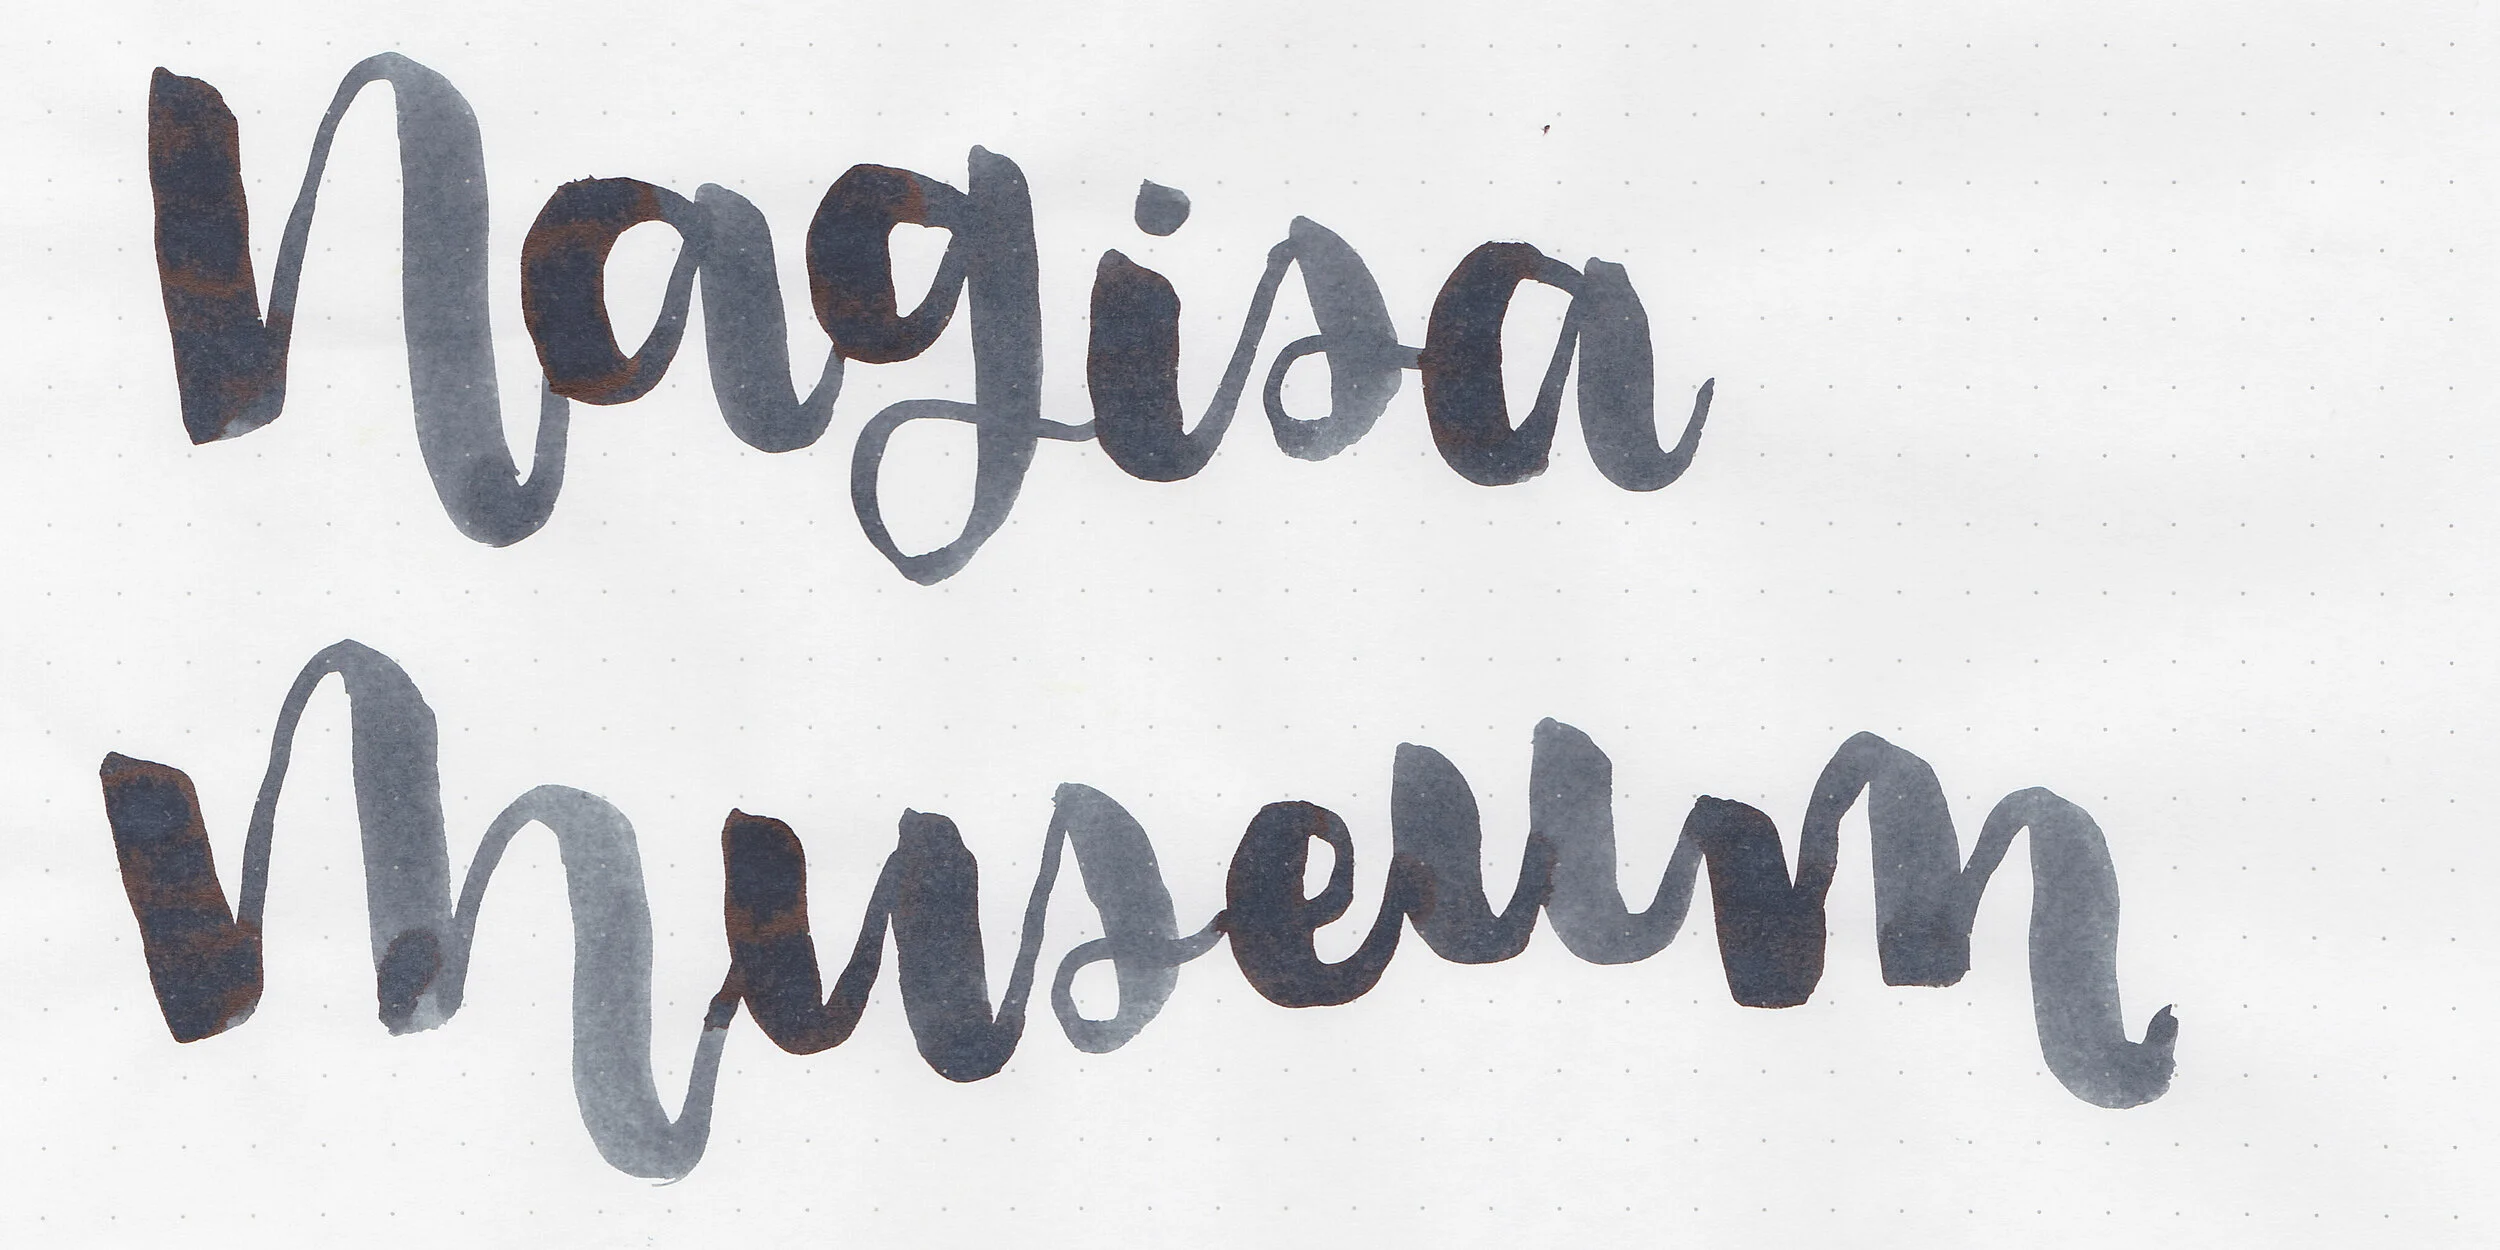 Nagisa
Museum